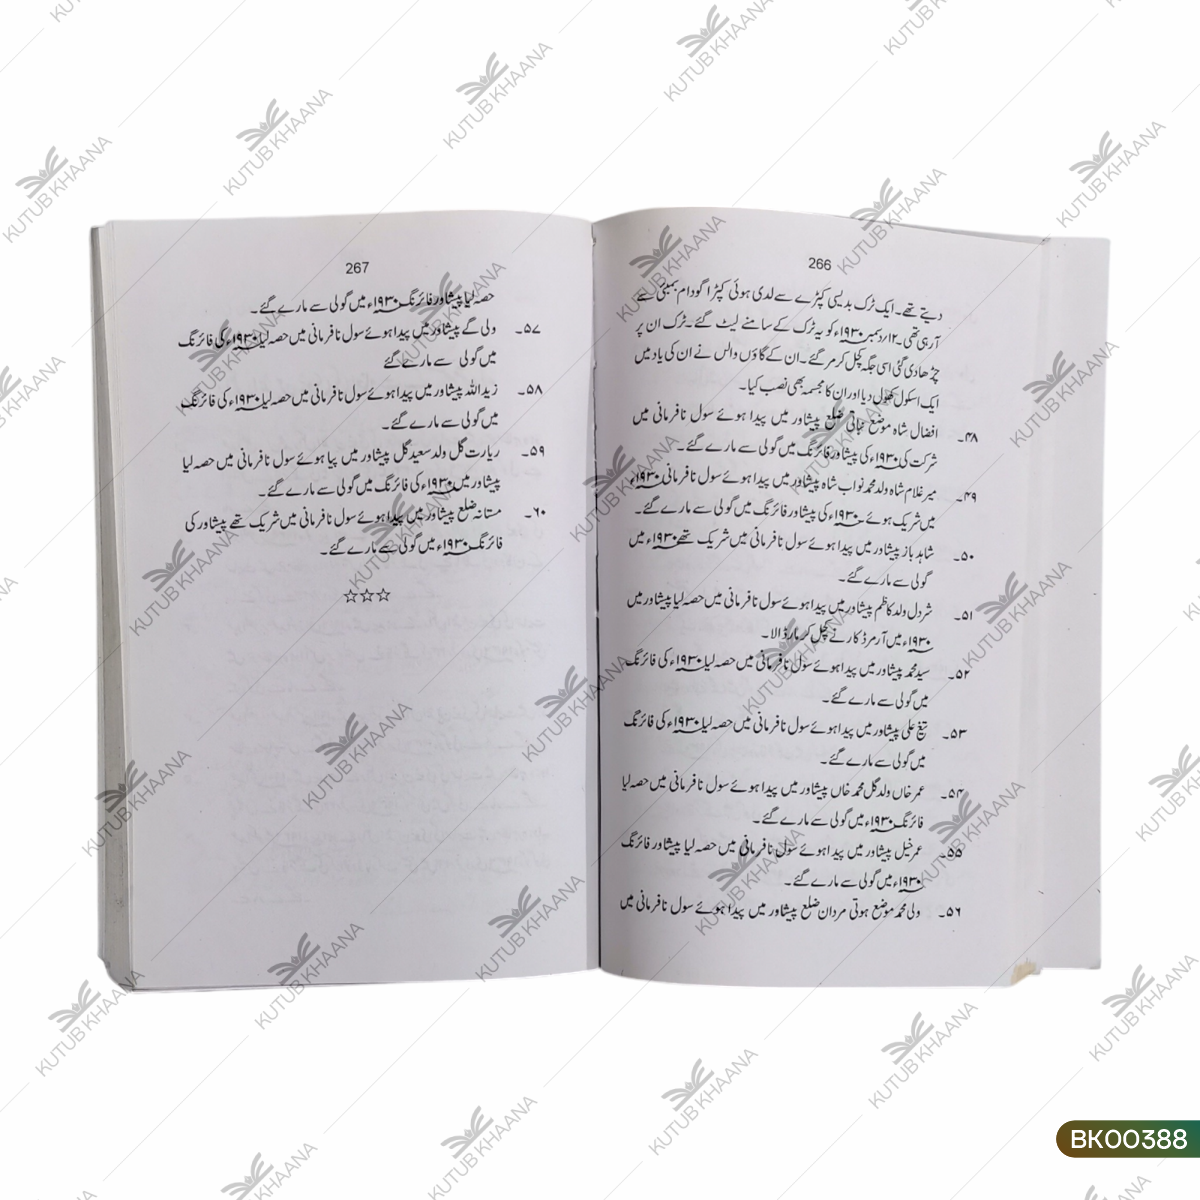 266
دیتے تھے۔ ایک ٹرک بدیسی کپڑے سے لدی ہوئی کپڑا گودام بمبئی سے
آرہی تھی۔ ۱۲؍دسمبر ۱۹۳۰ء کو یہ ٹرک کے سامنے لیٹ گئے۔ ٹرک ان پر
چڑھادی گئی اسی جگہ کچل کر مر گئے۔ ان کے گاؤں والس نے ان کی یاد میں
ایک اسکول کھول دیا اور ان کا مجسمہ بھی نصب کیا۔
۴۸۔ افضال شاہ موضع نباتی ضلع پیشاور میں پیدا ہوئے سول نافرمانی میں
شرکت کی ۱۹۳۰ء کی پیشاور فائرنگ میں گولی سے مارے گئے۔
۴۹۔ میر غلام شاہ ولد محمد نواب شاہ پیشاور میں پیدا ہوئے سول نافرمانی ۱۹۳۰ء
میں شریک ہوئے ۱۹۳۰ء کی پیشاور فائرنگ میں گولی سے مارے گئے۔
۵۰۔ شاہد باز پیشاور میں پیدا ہوئے سول نافرمانی میں شریک تھے ۱۹۳۰ء میں
گولی سے مارے گئے۔
۵۱۔ شردل ولد کاظم پیشاور میں پیدا ہوئے سول نافرمانی میں حصہ لیا پیشاور میں
۱۹۳۰ء میں آرمرڈ کار نے کچل کر مار ڈالا۔
۵۲۔ سید محمد پیشاور میں پیدا ہوئے سول نافرمانی میں حصہ لیا ۱۹۳۰ء کی فائرنگ
میں گولی سے مارے گئے۔
۵۳۔ تیغ علی پیشاور میں پیدا ہوئے سول نافرمانی میں حصہ لیا ۱۹۳۰ء کی فائرنگ
میں گولی سے مارے گئے۔
۵۴۔ عمر خاں ولد گل محمد خاں پیشاور میں پیدا ہوئے سول نافرمانی میں حصہ لیا
فائرنگ ۱۹۳۰ء میں گولی سے مارے گئے۔
۵۵۔ عمر خیل پیشاور میں پیدا ہوئے سول نافرمانی میں حصہ لیا پیشاور فائرنگ
۱۹۳۰ء میں گولی سے مارے گئے۔
۵۶۔ ولی محمد موضع ہوتی مردان ضلع پیشاور میں پیدا ہوئے سول نافرمانی میں
267
حصہ لیا پیشاور فائرنگ ۱۹۳۰ء میں گولی سے مارے گئے۔
۵۷۔ ولی گے پیشاور میں پیدا ہوئے سول نافرمانی میں حصہ لیا ۱۹۳۰ء کی فائرنگ
میں گولی سے مارے گئے
۵۸۔ زید اللہ پیشاور میں پیدا ہوئے سول نافرمانی میں حصہ لیا ۱۹۳۰ء کی فائرنگ
میں گولی سے مارے گئے۔
۵۹۔ ریارت گل ولد سعید گل پیشاور میں پیا ہوئے سول نافرمانی میں حصہ لیا
پیشاور میں ۱۹۳۰ء کی فائرنگ میں گولی سے مارے گئے۔
۶۰۔ مستانہ ضلع پیشاور میں پیدا ہوئے سول نافرمانی میں شریک تھے پیشاور کی
فائرنگ ۱۹۳۰ء میں گولی سے مارے گئے۔
☆☆☆
KUTUB KHAANA
BK00388